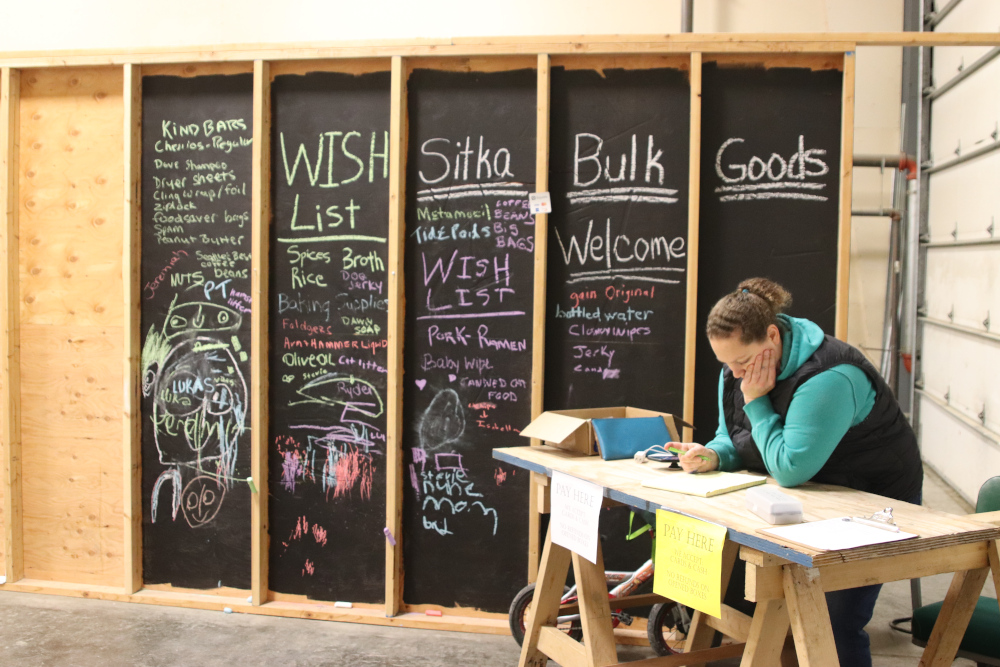 KIND BARS
Cherrios-Regular
Dove Shampoo
Dryer sheets
Cling wrap/foil
ziplock
foodsaver bags
Spam
Peanut Butter
coffee
beans
Jeremiah
NUTS
PT
LUKAS
WISH
List
Spices
Broth
Rice
Dog
Jerky
Baking Supplies
Foldgers
Dawn
SOAP
Arm & HAMMER LIQUID
Olive OIL
Cat litter
Stevia
Ryder
Sitka
Metamucil
COFFEE
BEANS
Tide Pods
BIG
BAGS
WISH
LIST
PORK-RAMEN
Baby Wipe
CANNED CAT
FOOD
Isabella
stevie
mom
Bulk
Welcome
gain Original
bottled water
Clorox wipes
Jerky
Goods
PAY HERE
PAY HERE